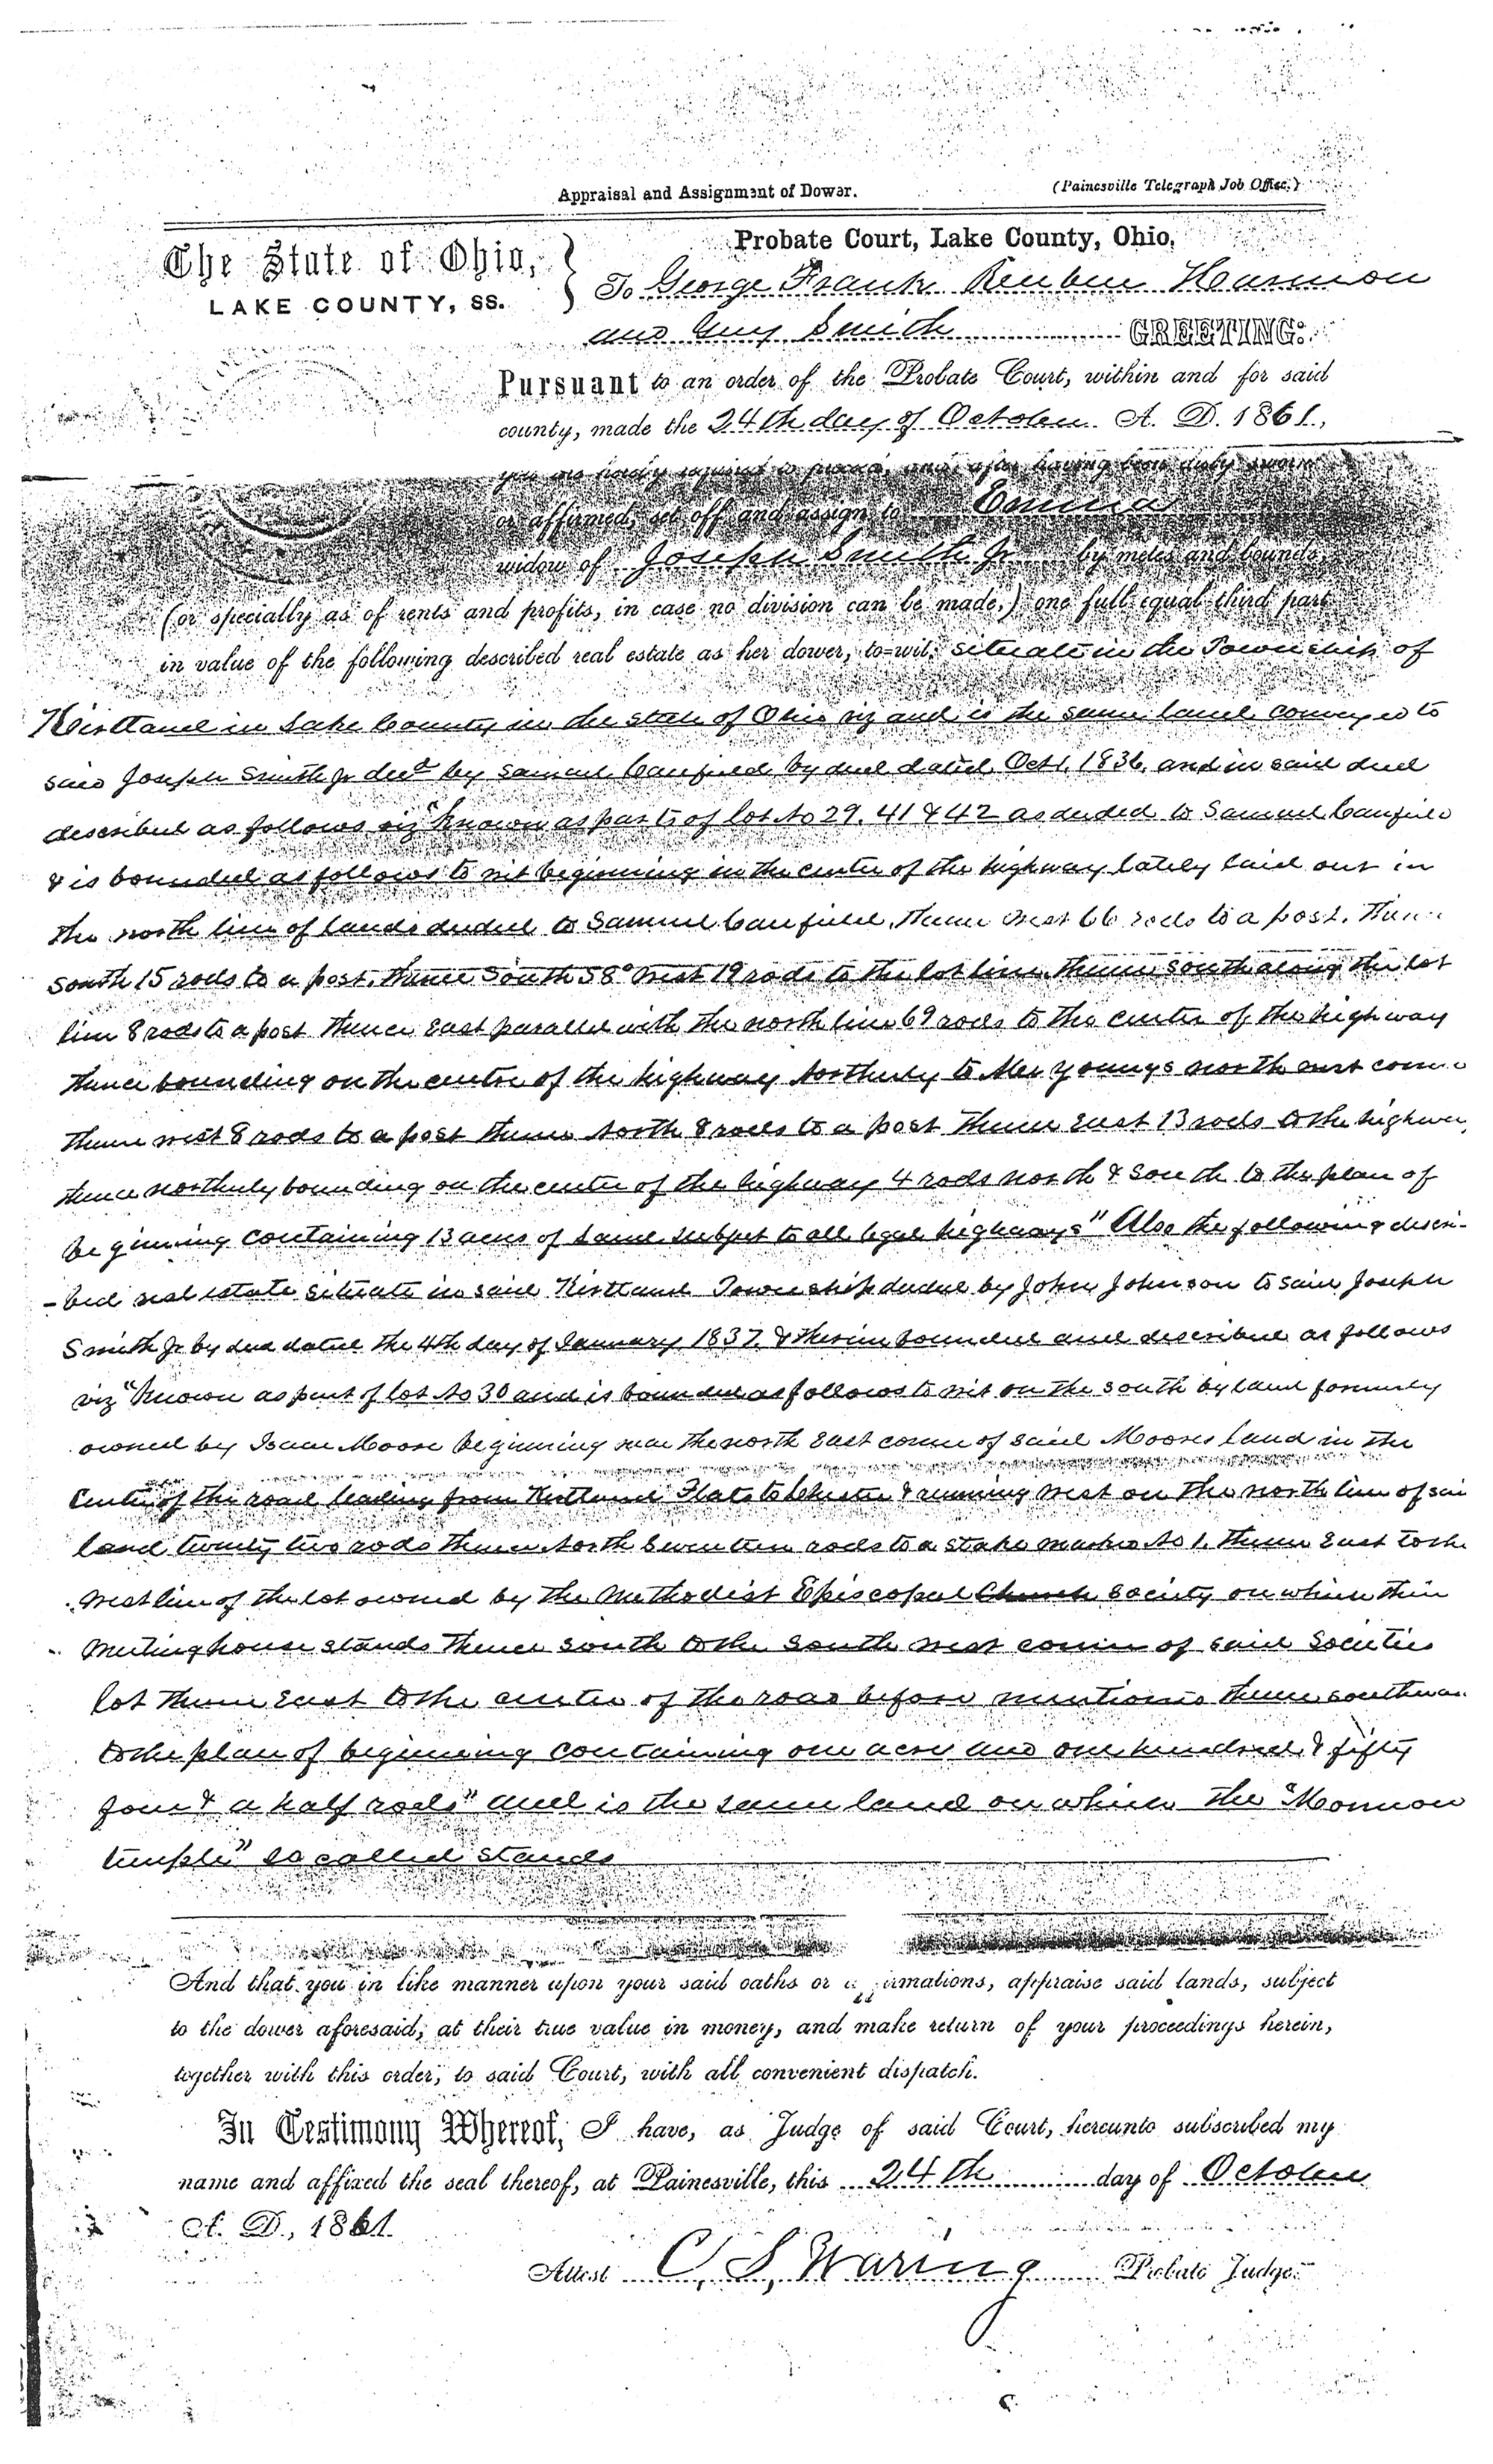 Appraisal and Assignment of Dower.
(Painesville Telegraph Job Office.)
The State of Ohio,
LAKE COUNTY, SS.
Probate Court, Lake County, Ohio,
To George Frank Reuben Harmon
and Guy Smith GREETING:
Pursuant to an order of the Probate Court, within and for said
county, made the 24th day of October A. D. 1861,
you are hereby required to proceed, and, after having been duly sworn
or affirmed, set off and assign to Emma
widow of Joseph Smith Jr by metes and bounds,
(or specially as of rents and profits, in case no division can be made,) one full equal third part
in value of the following described real estate as her dower, to=wit: situate in the Township of
Kirtland in Lake County in the state of Ohio viz and is the same land conveyed to
said Joseph Smith Jr decd by Samuel Canfield by deed dated Oct 1. 1836. and in said deed
described as follows viz "Known as parts of lot No 29. 41 & 42 as deeded to Samuel Canfield
& is bounded as follows to wit beginning in the center of the highway lately laid out in
the north line of lands deeded to Samuel Canfield, thence west 66 rods to a post. Thence
South 15 rods to a post. thence South 58° west 19 rods to the lot line. thence south along the lot
line 8 rods to a post thence East parallel with the north line 69 rods to the center of the highway
thence bounding on the centre of the highway Northerly to Youngs north west corner
thence west 8 rods to a post thence North 8 rods to a post Thence East 13 rods to the highway
thence northerly bounding on the center of the highway 4 rods north & south to the place of
beginning containing 13 acres of land subject to all legal highways" Also the following descri-
-bed real estate situate in said Kirtland Township deeded by John Johnson to said Joseph
Smith Jr by deed dated the 4th day of January 1837. & therein bounded and described as follows
viz "Known as part of lot No 30 and is bounded as follows to wit on the south by land formerly
owned by Isaac Moore beginning near the north East corner of said Moores land in the
Center of the road leading from Kirtland Flats to Chester & running west on the north line of said
land twenty two rods thence North Seventeen rods to a stake marked No 1. thence East to the
West line of the lot owned by the Methodist Episcopal Church society on which their
Meeting house stands thence south to the south west corner of said Societies
lot thence East to the center of the road before mentioned thence southward
to the place of beginning containing one acre and one hundred & fifty
four & a half rods" and is the same land on which the "Mormon
temple" so called stands
And that you in like manner upon your said oaths or affirmations, appraise said lands, subject
to the dower aforesaid, at their true value in money, and make return of your proceedings herein,
together with this order, to said Court, with all convenient dispatch.
In Testimony Whereof, I have, as Judge of said Court, hereunto subscribed my
name and affixed the seal thereof, at Painesville, this 24th day of October
A. D., 1861.
Attest C. S. Waring Probate Judge.